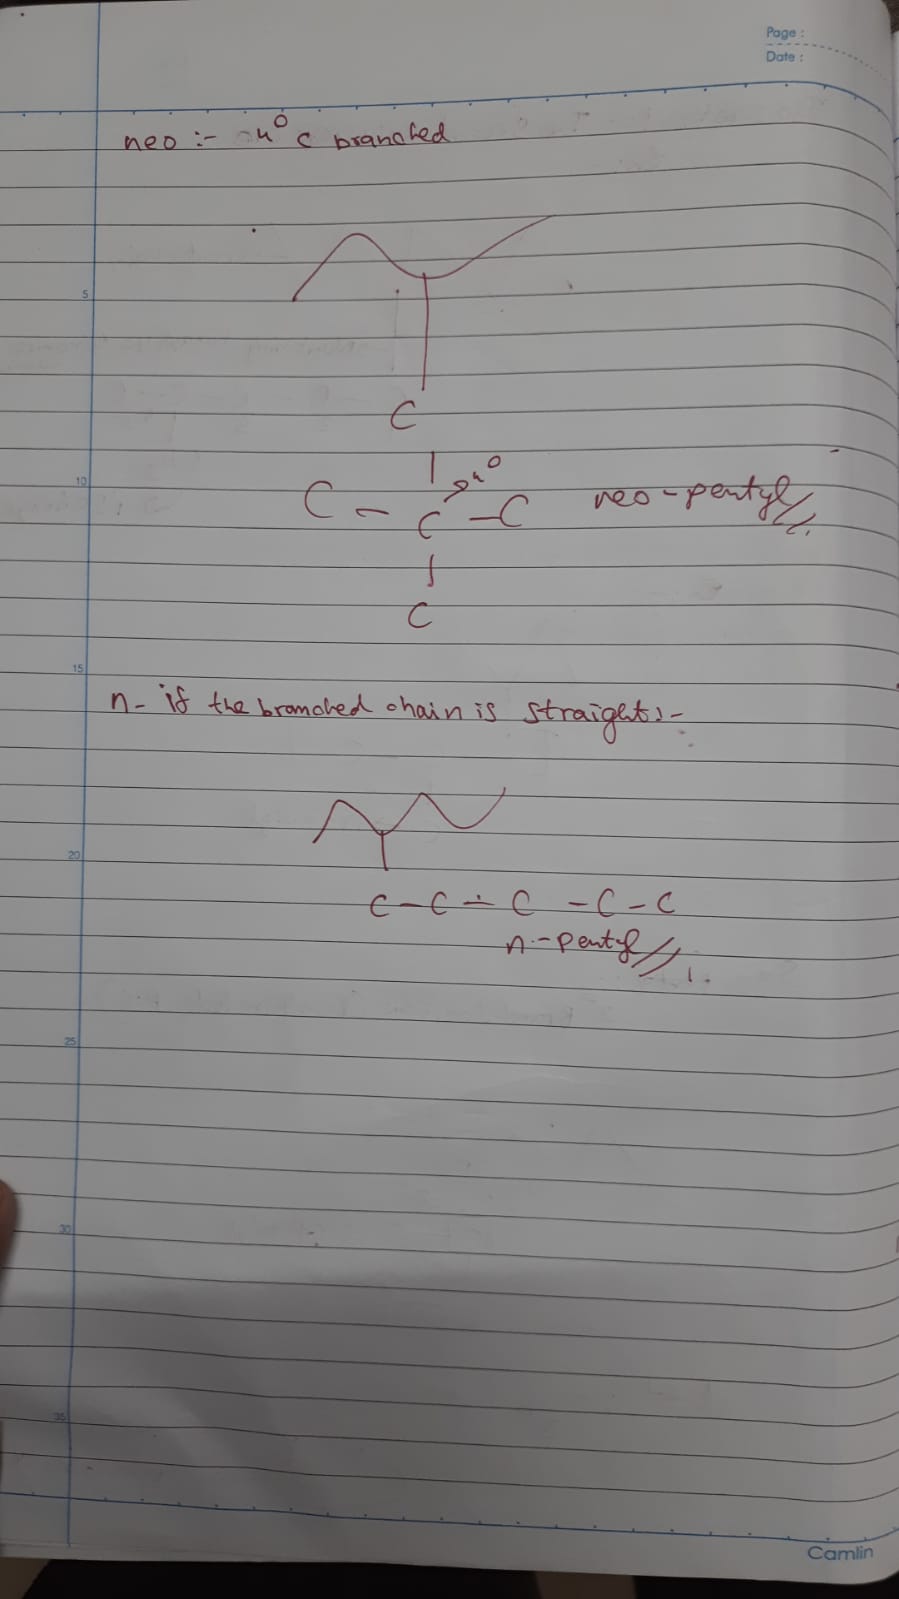 Page :
Date :
neo :- 4° C branched
5
C
10
4°
C - C - C neo-pentyl
C
15
n- if the branched chain is straight :-
20
C - C - C - C - C
n-pentyl
25
30
35
Camlin